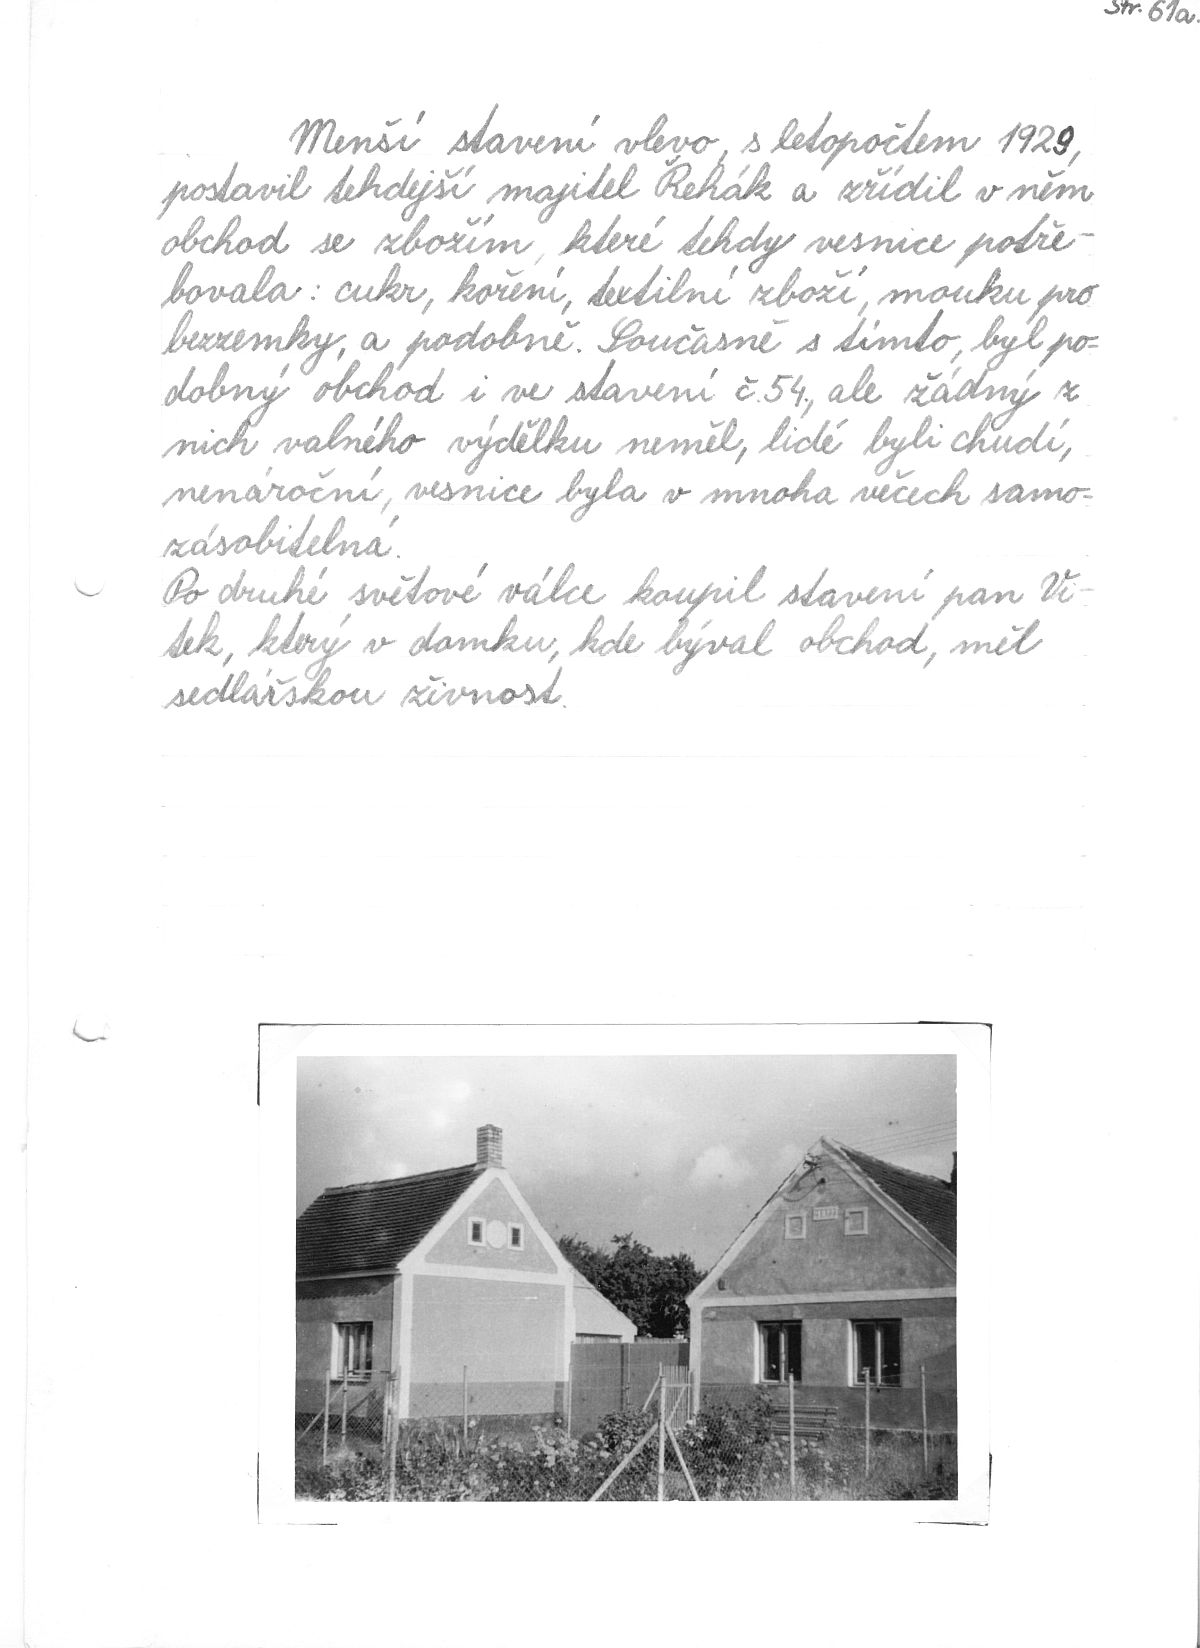 Str. 61a.
Menší stavení vlevo, s letopočtem 1929,
postavil tehdejší majitel Řehák a zřídil v něm
obchod se zbožím, které tehdy vesnice potře-
bovala: cukr, koření, textilní zboží, mouku pro
bezzemky, a podobně. Současně s tímto, byl po=
dobný obchod i ve stavení č.54., ale žádný z
nich valného výdělku neměl, lidé byli chudí,
nenároční, vesnice byla v mnoha věcech samo=
zásobitelná.
Po druhé světové válce koupil stavení pan Ví-
tek, který v domku, kde býval obchod, měl
sedlářskou živnost.